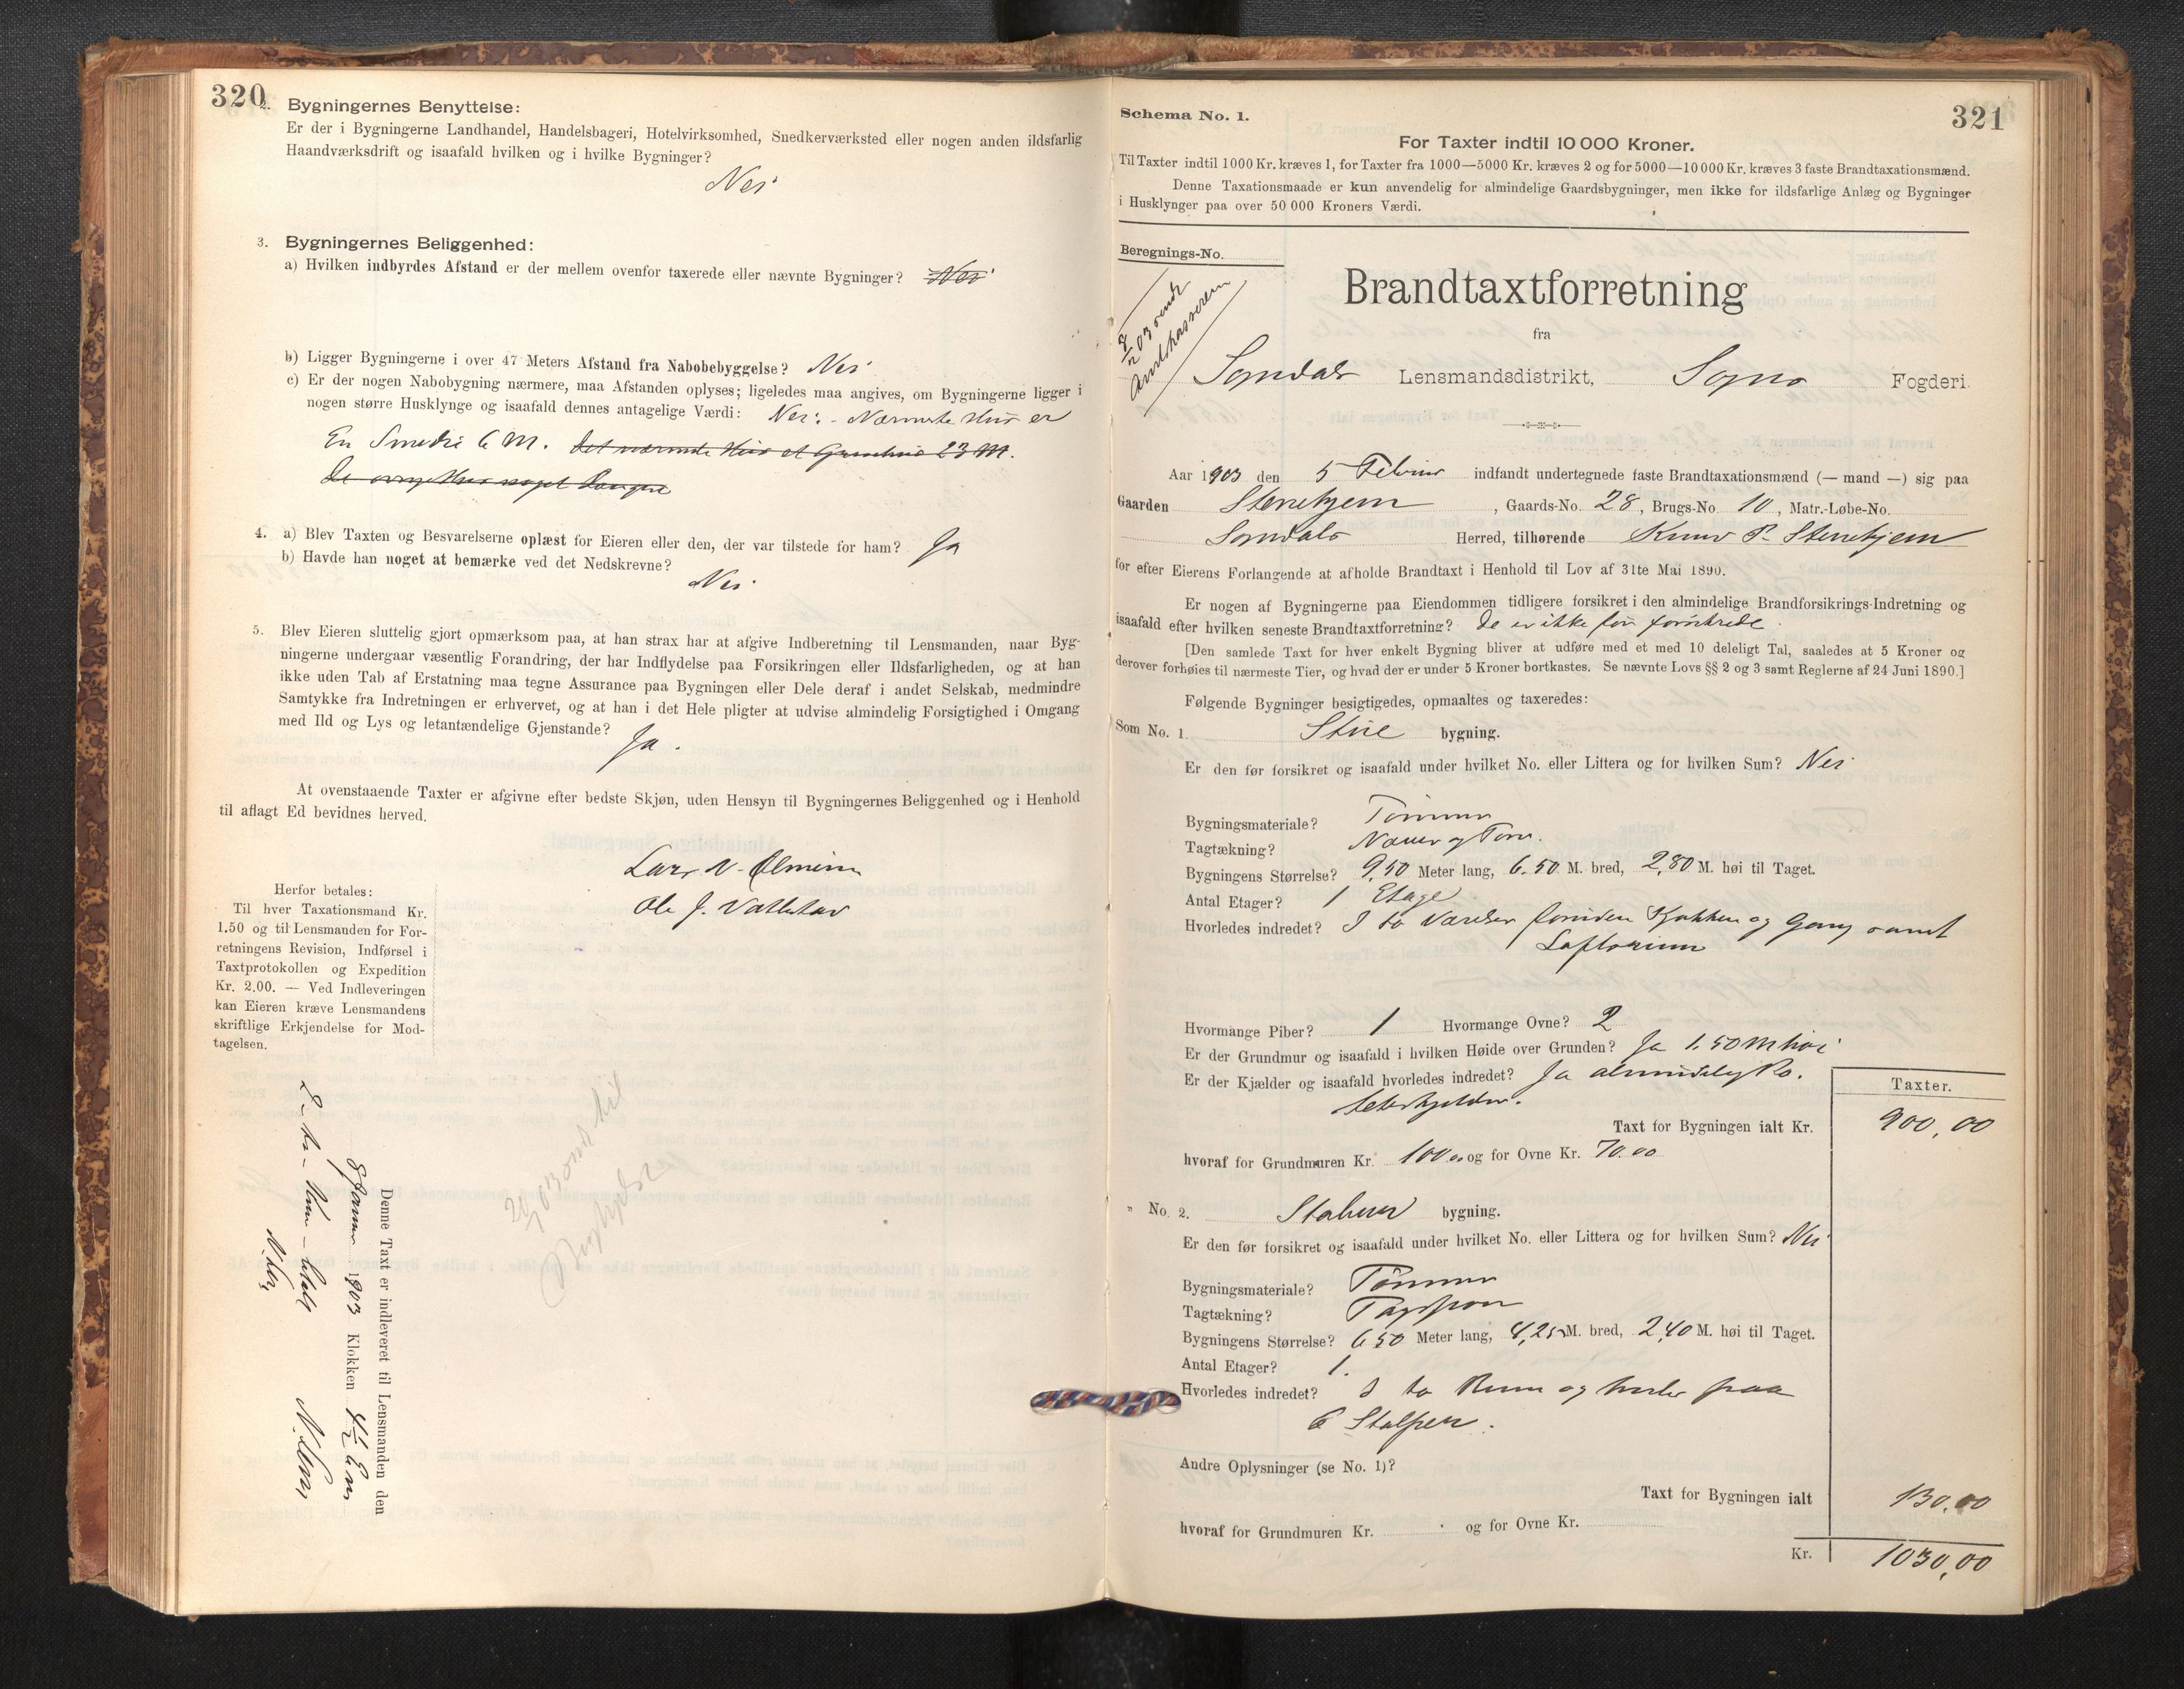 320
2. Bygningernes Benyttelse:
Er der i Bygningerne Landhandel, Handelsbageri, Hotelvirksomhed, Snedkerværksted eller nogen anden ildsfarlig
Haandværksdrift og isaafald hvilken og i hvilke Bygninger?
Nei
3. Bygningernes Beliggenhed:
a) Hvilken indbyrdes Afstand er der mellem ovenfor taxerede eller nævnte Bygninger? Nei
b) Ligger Bygningerne i over 47 Meters Afstand fra Nabobebyggelse? Nei
c) Er der nogen Nabobygning nærmere, maa Afstanden oplyses; ligeledes maa angives, om Bygningerne ligger i
nogen større Husklynge og isaafald dennes antagelige Værdi: Nei. - Nærmeste Hus er
En Smedie 6 M. det nærmeste Hus et 23 M.
De øvrige Huse noget længere
4. a) Blev Taxten og Besvarelserne oplæst for Eieren eller den, der var tilstede for ham? Ja
b) Havde han noget at bemærke ved det Nedskrevne?
Nei
5. Blev Eieren sluttelig gjort opmærksom paa, at han strax har at afgive Indberetning til Lensmanden, naar Byg-
ningerne undergaar væsentlig Forandring, der har Indflydelse paa Forsikringen eller Ildsfarligheden, og at han
ikke uden Tab af Erstatning maa tegne Assurance paa Bygningen eller Dele deraf i andet Selskab, medmindre
Samtykke fra Indretningen er erhvervet, og at han i det Hele pligter at udvise almindelig Forsigtighed i Omgang
med Ild og Lys og letantændelige Gjenstande?
Ja.
At ovenstaaende Taxter er afgivne efter bedste Skjøn, uden Hensyn til Bygningernes Beliggenhed og i Henhold
til aflagt Ed bevidnes herved.
Lars N.
Ole J.
Herfor betales:
Til hver Taxationsmand Kr.
1.50 og til Lensmanden for For-
retningens Revision, Indførsel i
Taxtprotokollen og Expedition
Kr. 2.00. — Ved Indleveringen
kan Eieren kræve Lensmandens
skriftlige Erkjendelse for Mod-
tagelsen.
Denne Taxt er indleveret til Lensmanden den
1903 Klokken 4½ Em
321
Schema No. 1.
For Taxter indtil 10 000 Kroner.
Til Taxter indtil 1000 Kr. kræves 1, for Taxter fra 1000—5000 Kr. kræves 2 og for 5000—10 000 Kr. kræves 3 faste Brandtaxationsmænd.
Denne Taxationsmaade er kun anvendelig for almindelige Gaardsbygninger, men ikke for ildsfarlige Anlæg og Bygninger
i Husklynger paa over 50 000 Kroners Værdi.
Beregnings-No.
03 sendt
Amtskassereren
Brandtaxtforretning
fra
Sogndals Lensmandsdistrikt, Sogns Fogderi.
Aar 1903 den 5 Februar indfandt undertegnede faste Brandtaxationsmænd (— mand —) sig paa
Gaarden Stenehjem, Gaards-No. 28, Brugs-No. 10, Matr.-Løbe-No.
Sogndals Herred, tilhørende Knud P. Stenehjem
for efter Eierens Forlangende at afholde Brandtaxt i Henhold til Lov af 31te Mai 1890.
Er nogen af Bygningerne paa Eiendommen tidligere forsikret i den almindelige Brandforsikrings-Indretning og
isaafald efter hvilken seneste Brandtaxtforretning? De er ikke før forsikrede
[Den samlede Taxt for hver enkelt Bygning bliver at udføre med et med 10 deleligt Tal, saaledes at 5 Kroner og
derover forhøies til nærmeste Tier, og hvad der er under 5 Kroner bortkastes. Se nævnte Lovs §§ 2 og 3 samt Reglerne af 24 Juni 1890.]
Følgende Bygninger besigtigedes, opmaaltes og taxeredes:
Som No. 1. Stue bygning.
Er den før forsikret og isaafald under hvilket No. eller Littera og for hvilken Sum? Nei
Bygningsmateriale? Tømmer
Tagtækning? Næver og Torv.
Bygningens Størrelse? 9,50 Meter lang, 6.50 M. bred, 2,80 M. høi til Taget.
Antal Etager? 1 Etage
Hvorledes indredet? I to Værelser foruden Kjøkken og Gang samt
Loftsrum
Hvormange Piber? 1 Hvormange Ovne? 2
Er der Grundmur og isaafald i hvilken Høide over Grunden? Ja 1.50 M høi
Er der Kjælder og isaafald hvorledes indredet? Ja almindelig Po-
tetkjelder.
Taxter.
Taxt for Bygningen ialt Kr. 900,00
hvoraf for Grundmuren Kr. 100.00 og for Ovne Kr. 70.00
" No. 2. Stabur bygning.
Er den før forsikret og isaafald under hvilket No. eller Littera og for hvilken Sum? Nei
Bygningsmateriale? Tømmer
Tagtækning? Tagspon
Bygningens Størrelse? 6,50 Meter lang, 4,25 M. bred, 2,40 M. høi til Taget.
Antal Etager? 1.
Hvorledes indredet? I to Rum og hviler paa
6 Stolper.
Andre Oplysninger (se No. 1)?
Taxt for Bygningen ialt 130,00
hvoraf for Grundmuren Kr. og for Ovne Kr.
Kr. 1030,00